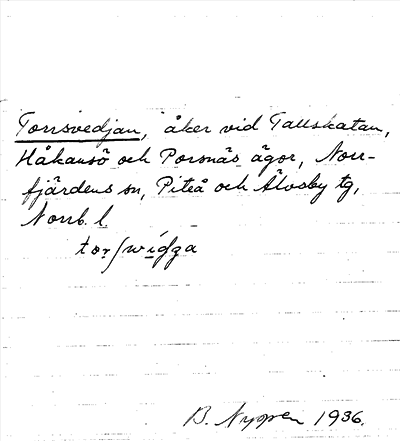 Torrsvedjan, åker vid Tallskatan,
Håkansö och Porsnäs ägor, Norr-
fjärdens sn, Piteå och Älvsby tg,
Norrb. l.
B. Nygren 1936.